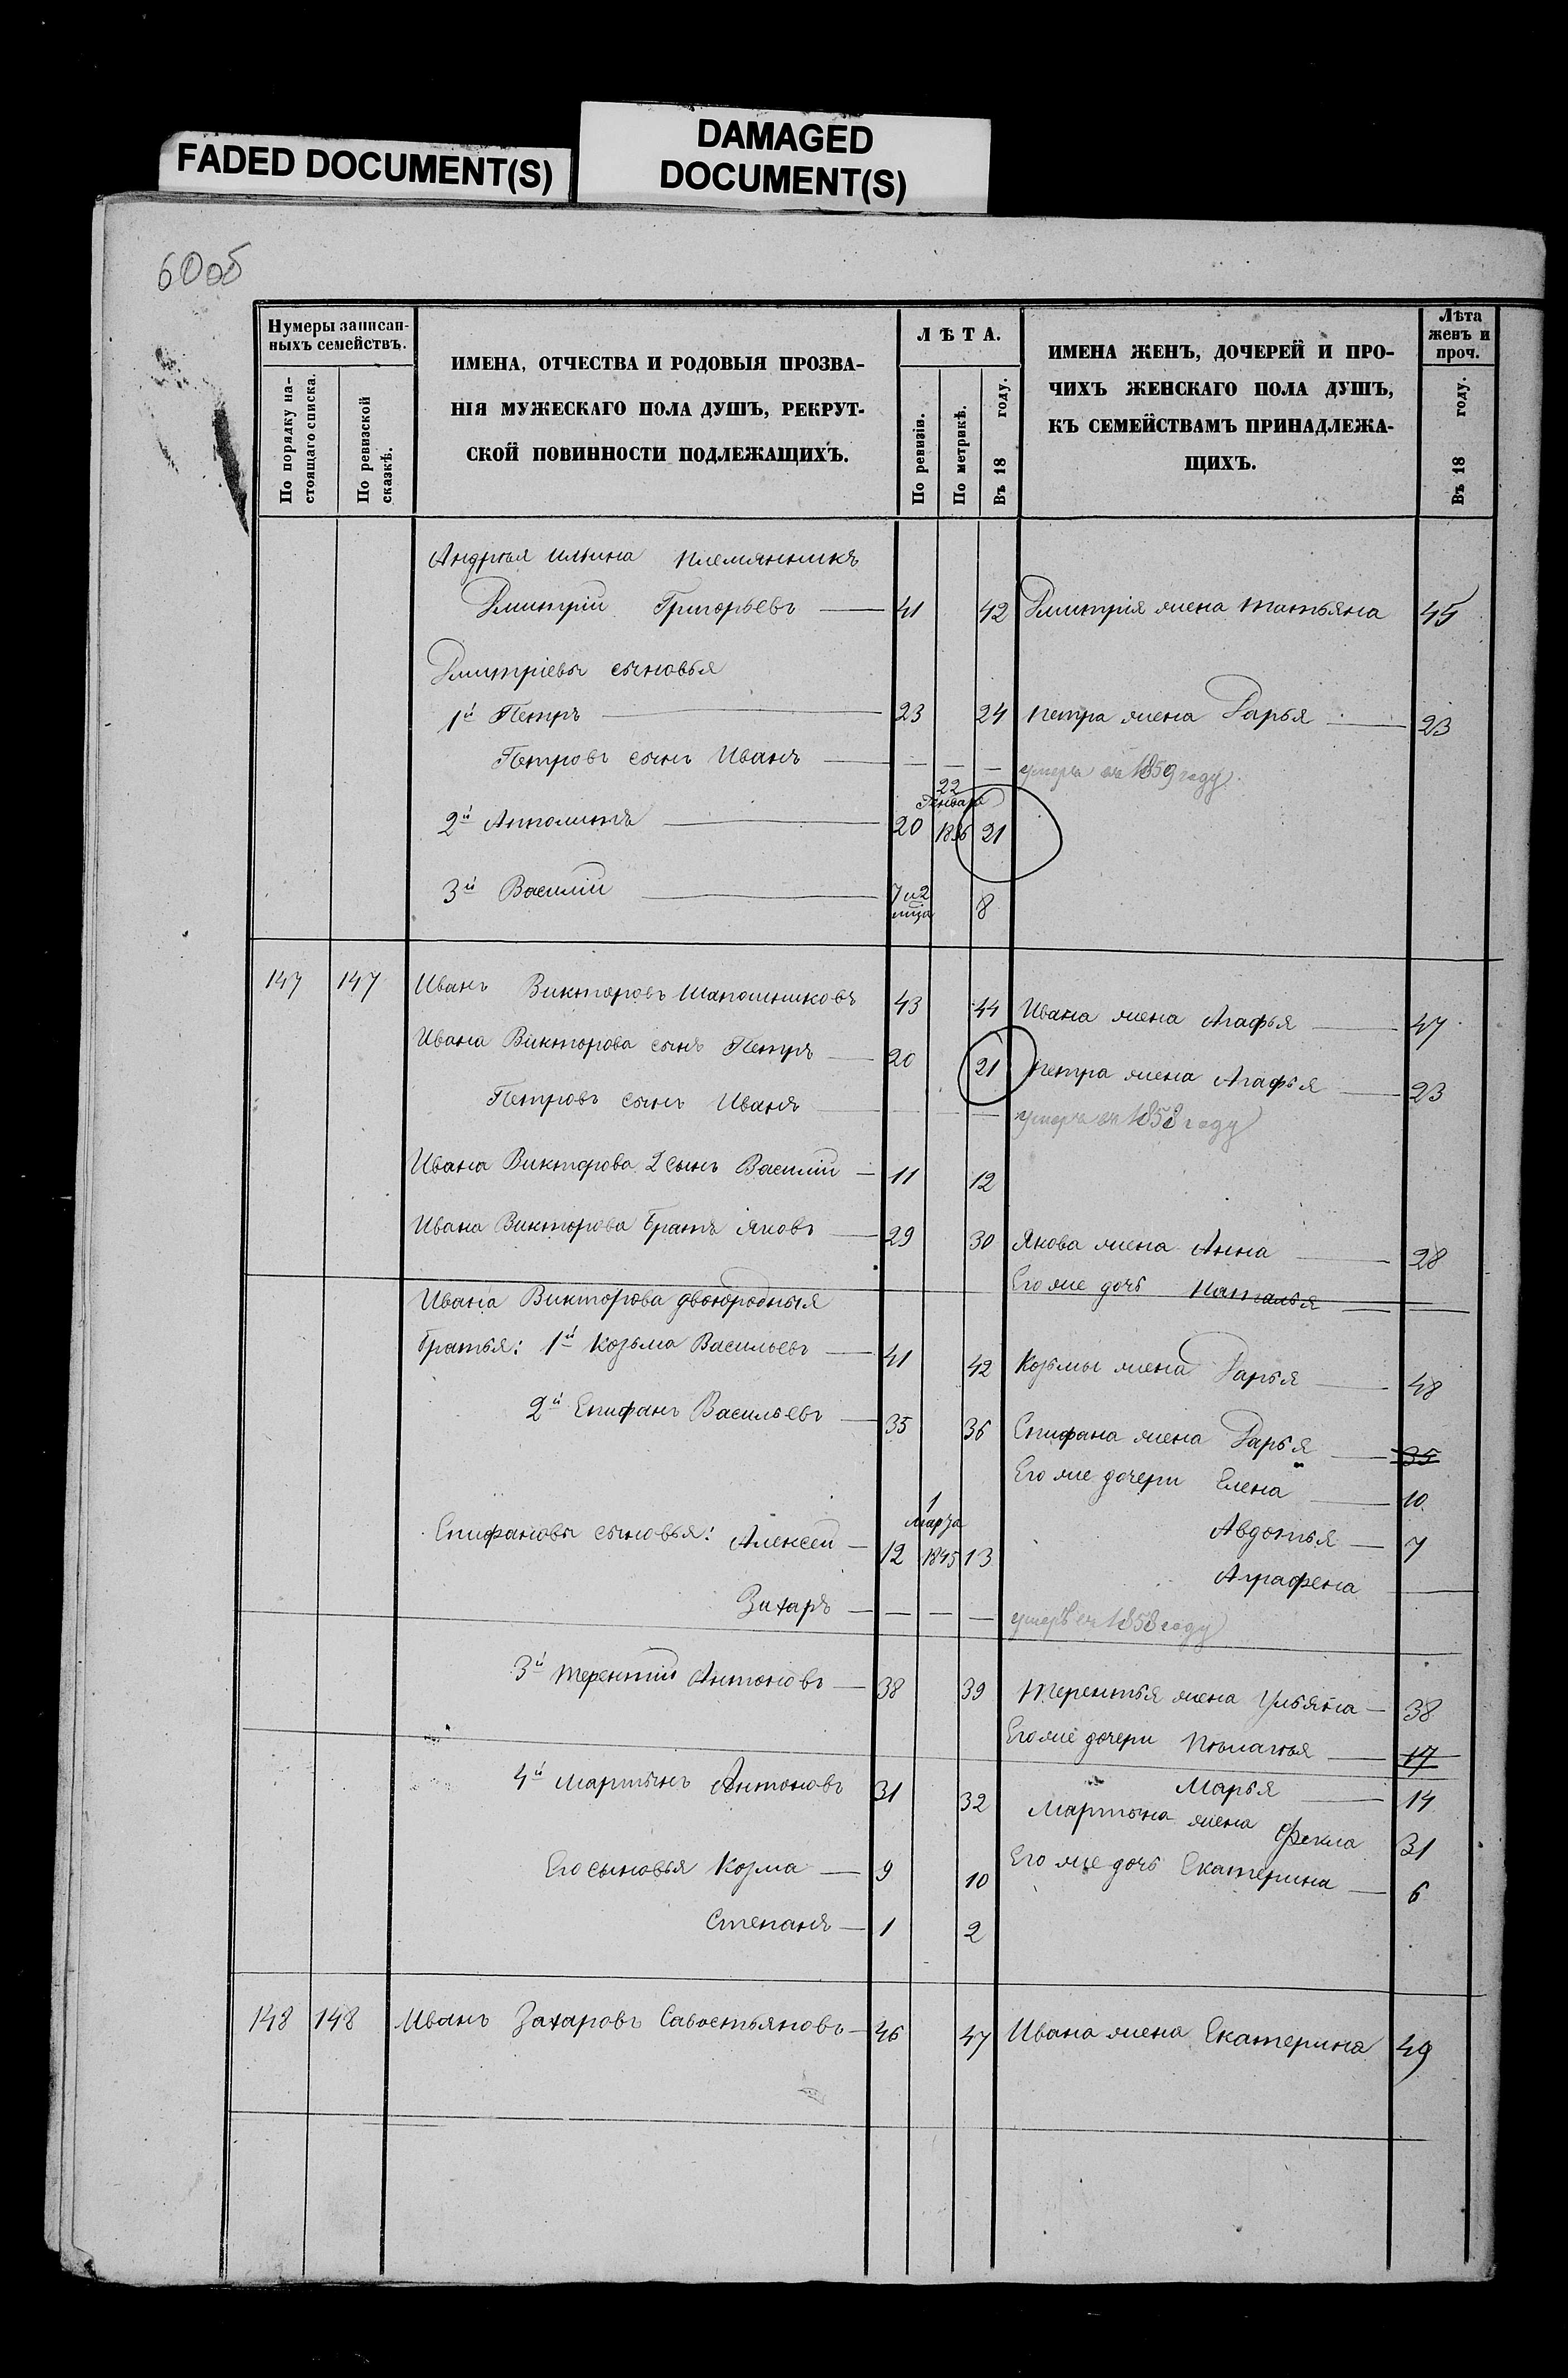 FADED DOCUMENT(S)
DAMAGED
DOCUMENT(S)
60об
Нумеры записан-
ныхъ семействъ.
По порядку на-
стоящаго списка.
По ревизской
сказкѣ.
ИМЕНА, ОТЧЕСТВА И РОДОВЫЯ ПРОЗВА-
НІЯ МУЖЕСКАГО ПОЛА ДУШЪ, РЕКРУТ-
СКОЙ ПОВИННОСТИ ПОДЛЕЖАЩИХЪ.
ЛѢТА.
По ревизіи.
По метрикѣ.
Въ 18 году.
ИМЕНА ЖЕНЪ, ДОЧЕРЕЙ И ПРО-
ЧИХЪ ЖЕНСКАГО ПОЛА ДУШЪ,
КЪ СЕМЕЙСТВАМЪ ПРИНАДЛЕЖА-
ЩИХЪ.
Лѣта
женъ и
проч.
Въ 18 году.
Андрѣя Ильина племянникъ
Дмитрій Григорьевъ — 41 42 Дмитрія жена Татьяна 45
Дмитріевы сыновья
1й Петръ — 23 24 Петра жена Дарья — 23
Петровъ сынъ Иванъ — — — — умеръ въ 1859 году
22
Января
2й Антон — 20 1836 21
3й Василій — 7 и 2 8
мца
147 147 Иванъ Викторовъ Шапошниковъ 43 44 Ивана жена Агафья — 47
Ивана Викторова сынъ Петръ — 20 21 Петра жена Агафья — 23
Петровъ сынъ Иванъ — — умеръ въ 1858 году
Ивана Викторова 2 сынъ Василій — 11 12
Ивана Викторова братъ Яковъ — 29 30 Якова жена Анна — 28
Его же дочь Наталья —
Ивана Викторова двоюродныя
братья: 1й Козьма Васильевъ — 41 42 Козьмы жена Дарья — 48
2й Епифанъ Васильевъ — 35 36 Епифана жена Дарья — 35
Его же дочери Елена — 10
1
Марта
Епифановы сыновья: Алексей — 12 1845 13 Авдотья — 7
Аграфена —
Захаръ — — — — умеръ въ 1858 году
3й Терентій Антоновъ — 38 39 Терентья жена Ульяна — 38
Его же дочери Пелагея — 17
Марья — 14
4й Мартынъ Антоновъ 31 32 Мартына жена Фекла 31
Его сыновья Козма — 9 10 Его же дочь Екатерина — 6
Степанъ — 1 2
148 148 Иванъ Захаровъ Савостьяновъ — 46 47 Ивана жена Екатерина 49